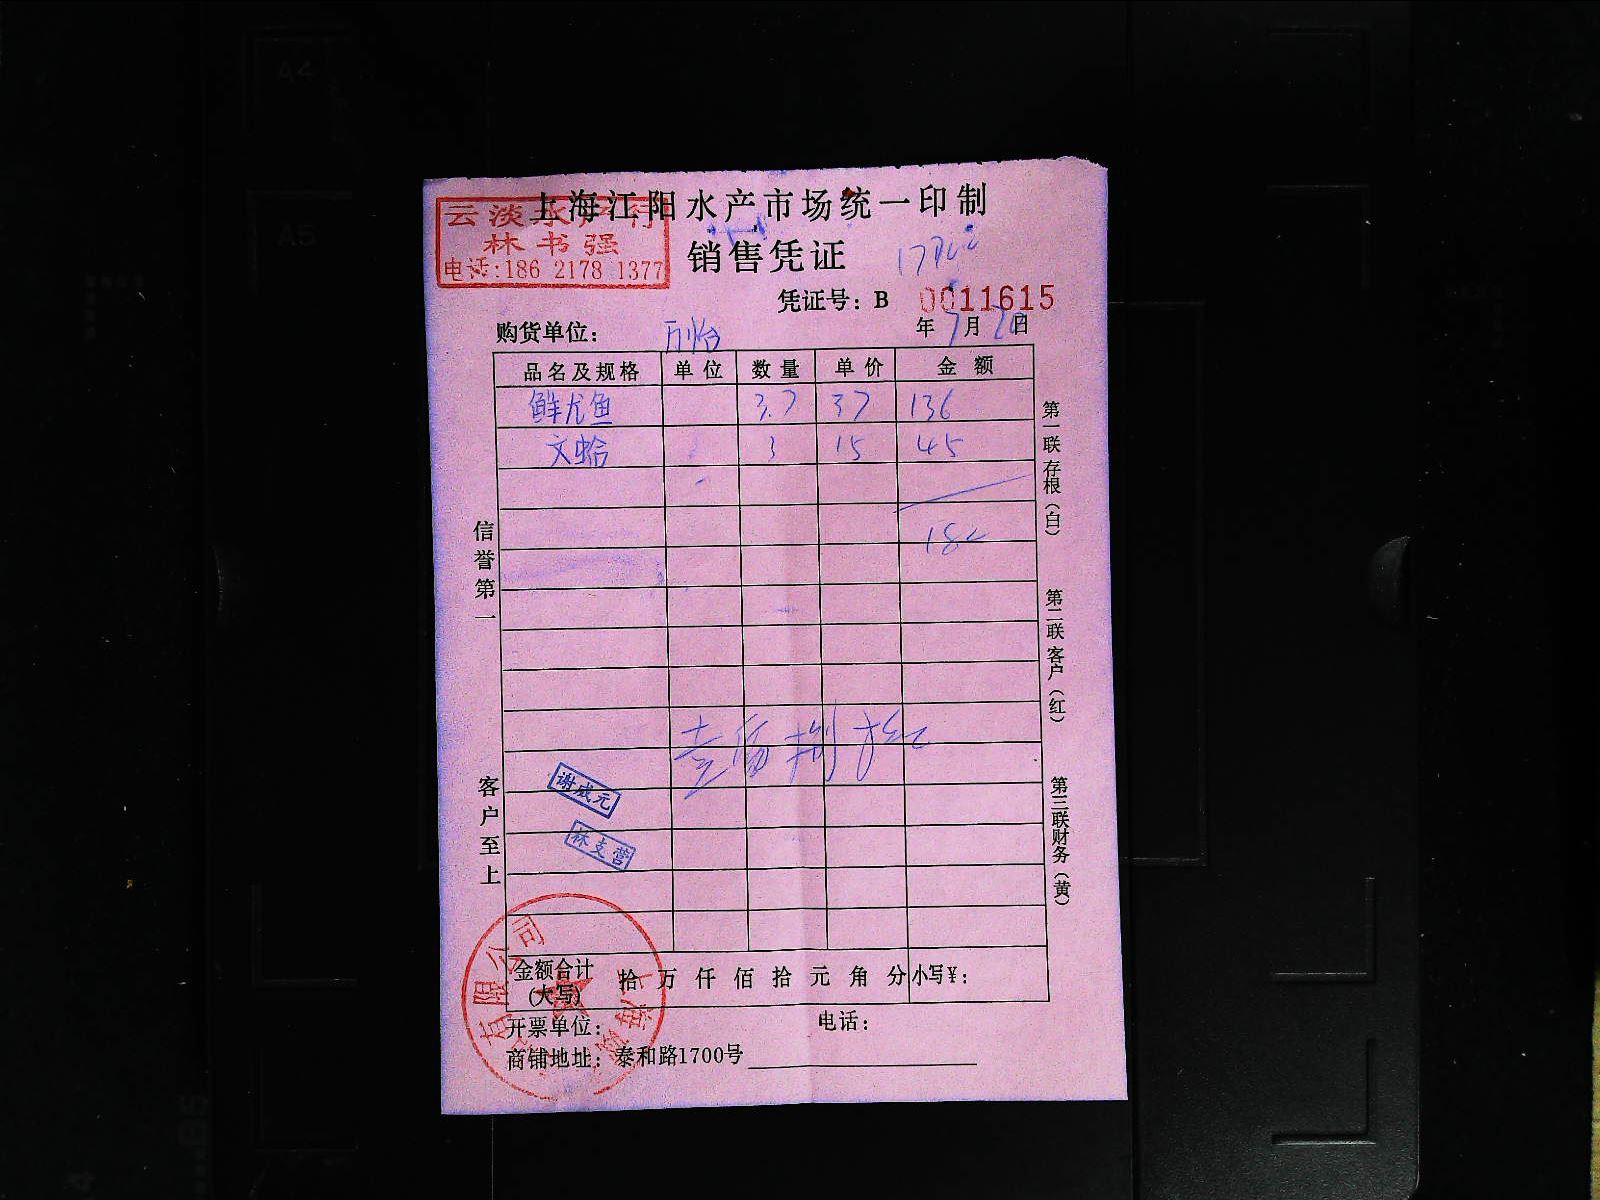 上海江阳水产市场统一印制
云淡水产行
林书强
电话:186 2178 1377
销售凭证
凭证号: B 0011615
购货单位: 万怡 年 7月20日
品名及规格 单位 数量 单价 金额
鲜尤鱼 3.7 37 136
文蛤 3 15 45
18
壹佰捌拾
信誉第一
客户至上
第一联存根(白)
第二联客户(红)
第三联财务(黄)
谢成元
林支营
金额合计(大写) 拾万仟佰拾元角分 小写¥:
开票单位: 电话:
商铺地址: 泰和路1700号
有限公司
上海